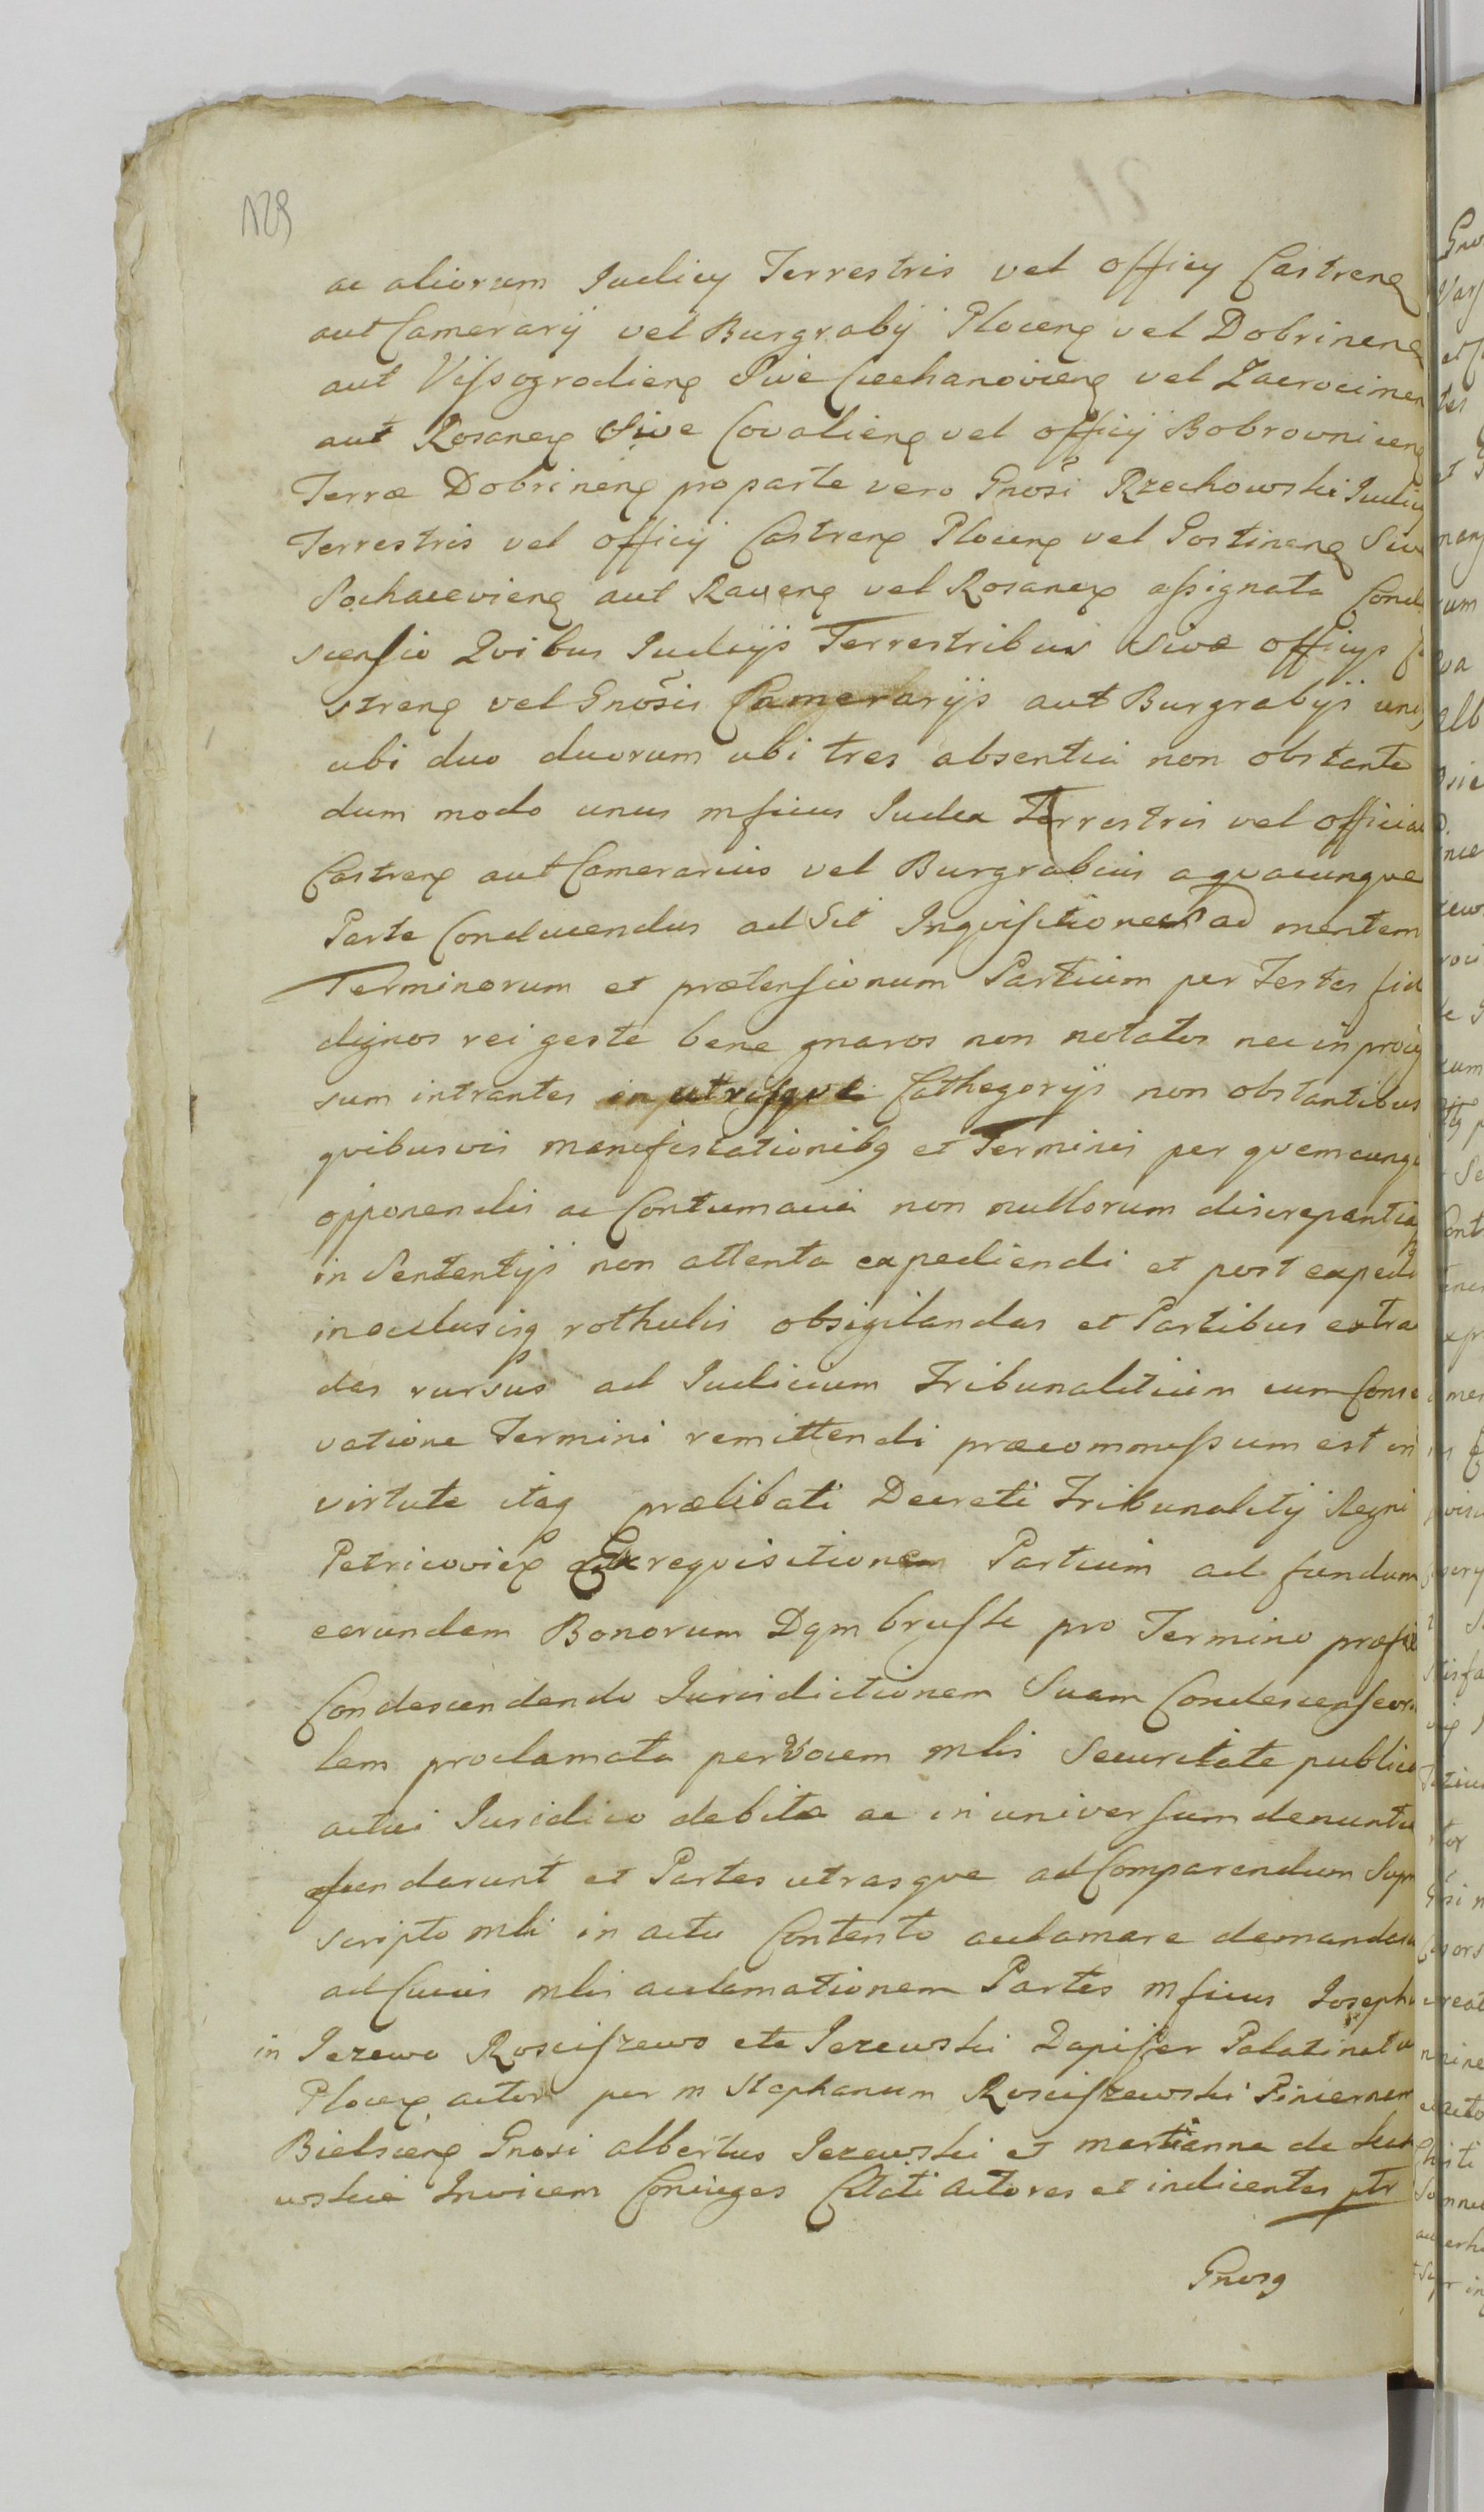 129
ac aliorum Judicy Terrestris vel officy Castren
aut Camerarij vel Burgrabij Plocen vel Dobrinen
aut Vissogrodien Sive Ciechanovien vel Zacrocimen
aut Rosanen Sive Covalien vel officij Bobrovnicen
Terræ Dobrinen pro parte vero Gnosi Rzechowski Judicy
Terrestris vel officij Castren Plocen vel Gostinen Sive
Sochacevien aut Raven vel Rosanen assignata Conde
scensio Quibus Judicijs Terrestribus Sive officijs Ca
stren vel Gnosis Camerarijs aut Burgrabijs uni9
ubi duo duorum ubi tres absentia non obstante
dum modo unus mficus Judex Terrestris vel officiae
Castren aut Camerarius vel Burgrabius a quacunque
Parte Conducendus ad Sit Inquisitiones ad mentem
Terminorum et prætensionum Partium per Testes fid
dignos rei geste bene gnaros non notatos nec in proces
sum intrantes in utrisque Cathegorijs non obstantibus
quibusvis manifestationibq et Terminis per quemcunq
opponendis ac Contumacia non nullorum discrepantiaq
in Sententijs non attenta expediendi et post expedi
inoclusisq rothulis obsigilandas et Partibus extra
das rursus ad Judicium Tribunalitium cum Conse
vatione Termini remittendi præcommissum est in
virtute itaq prælibati Decreti Tribunalitij Regni
Petricovien Ex requisitionem Partium ad fundum
eorundem Bonorum Dąmbrusk pro Termino præfix
Condescendendo Jurisdictionem Suam Condescensor
lem proclamata per Vocem mlis Securitate publica
actui Juridico debita ac in universum denuntia
fundarunt et Partes utrasque ad Comparendum Supra
scripto mli in actu Contento acclamare demandaru
ad Cuius mlis acclamationem Partes mficus Josephu
in Jezewo Rosciszewo etc Jezewski Dapifer Palatinatu
Plocen actor per m Stephanum Rosciszewski Pincernam
Bielscen Gnosi albertus Jezewski et martianna de
wskie Invicem Coniuges Citati Actores et indicentes ptr
Gnosq